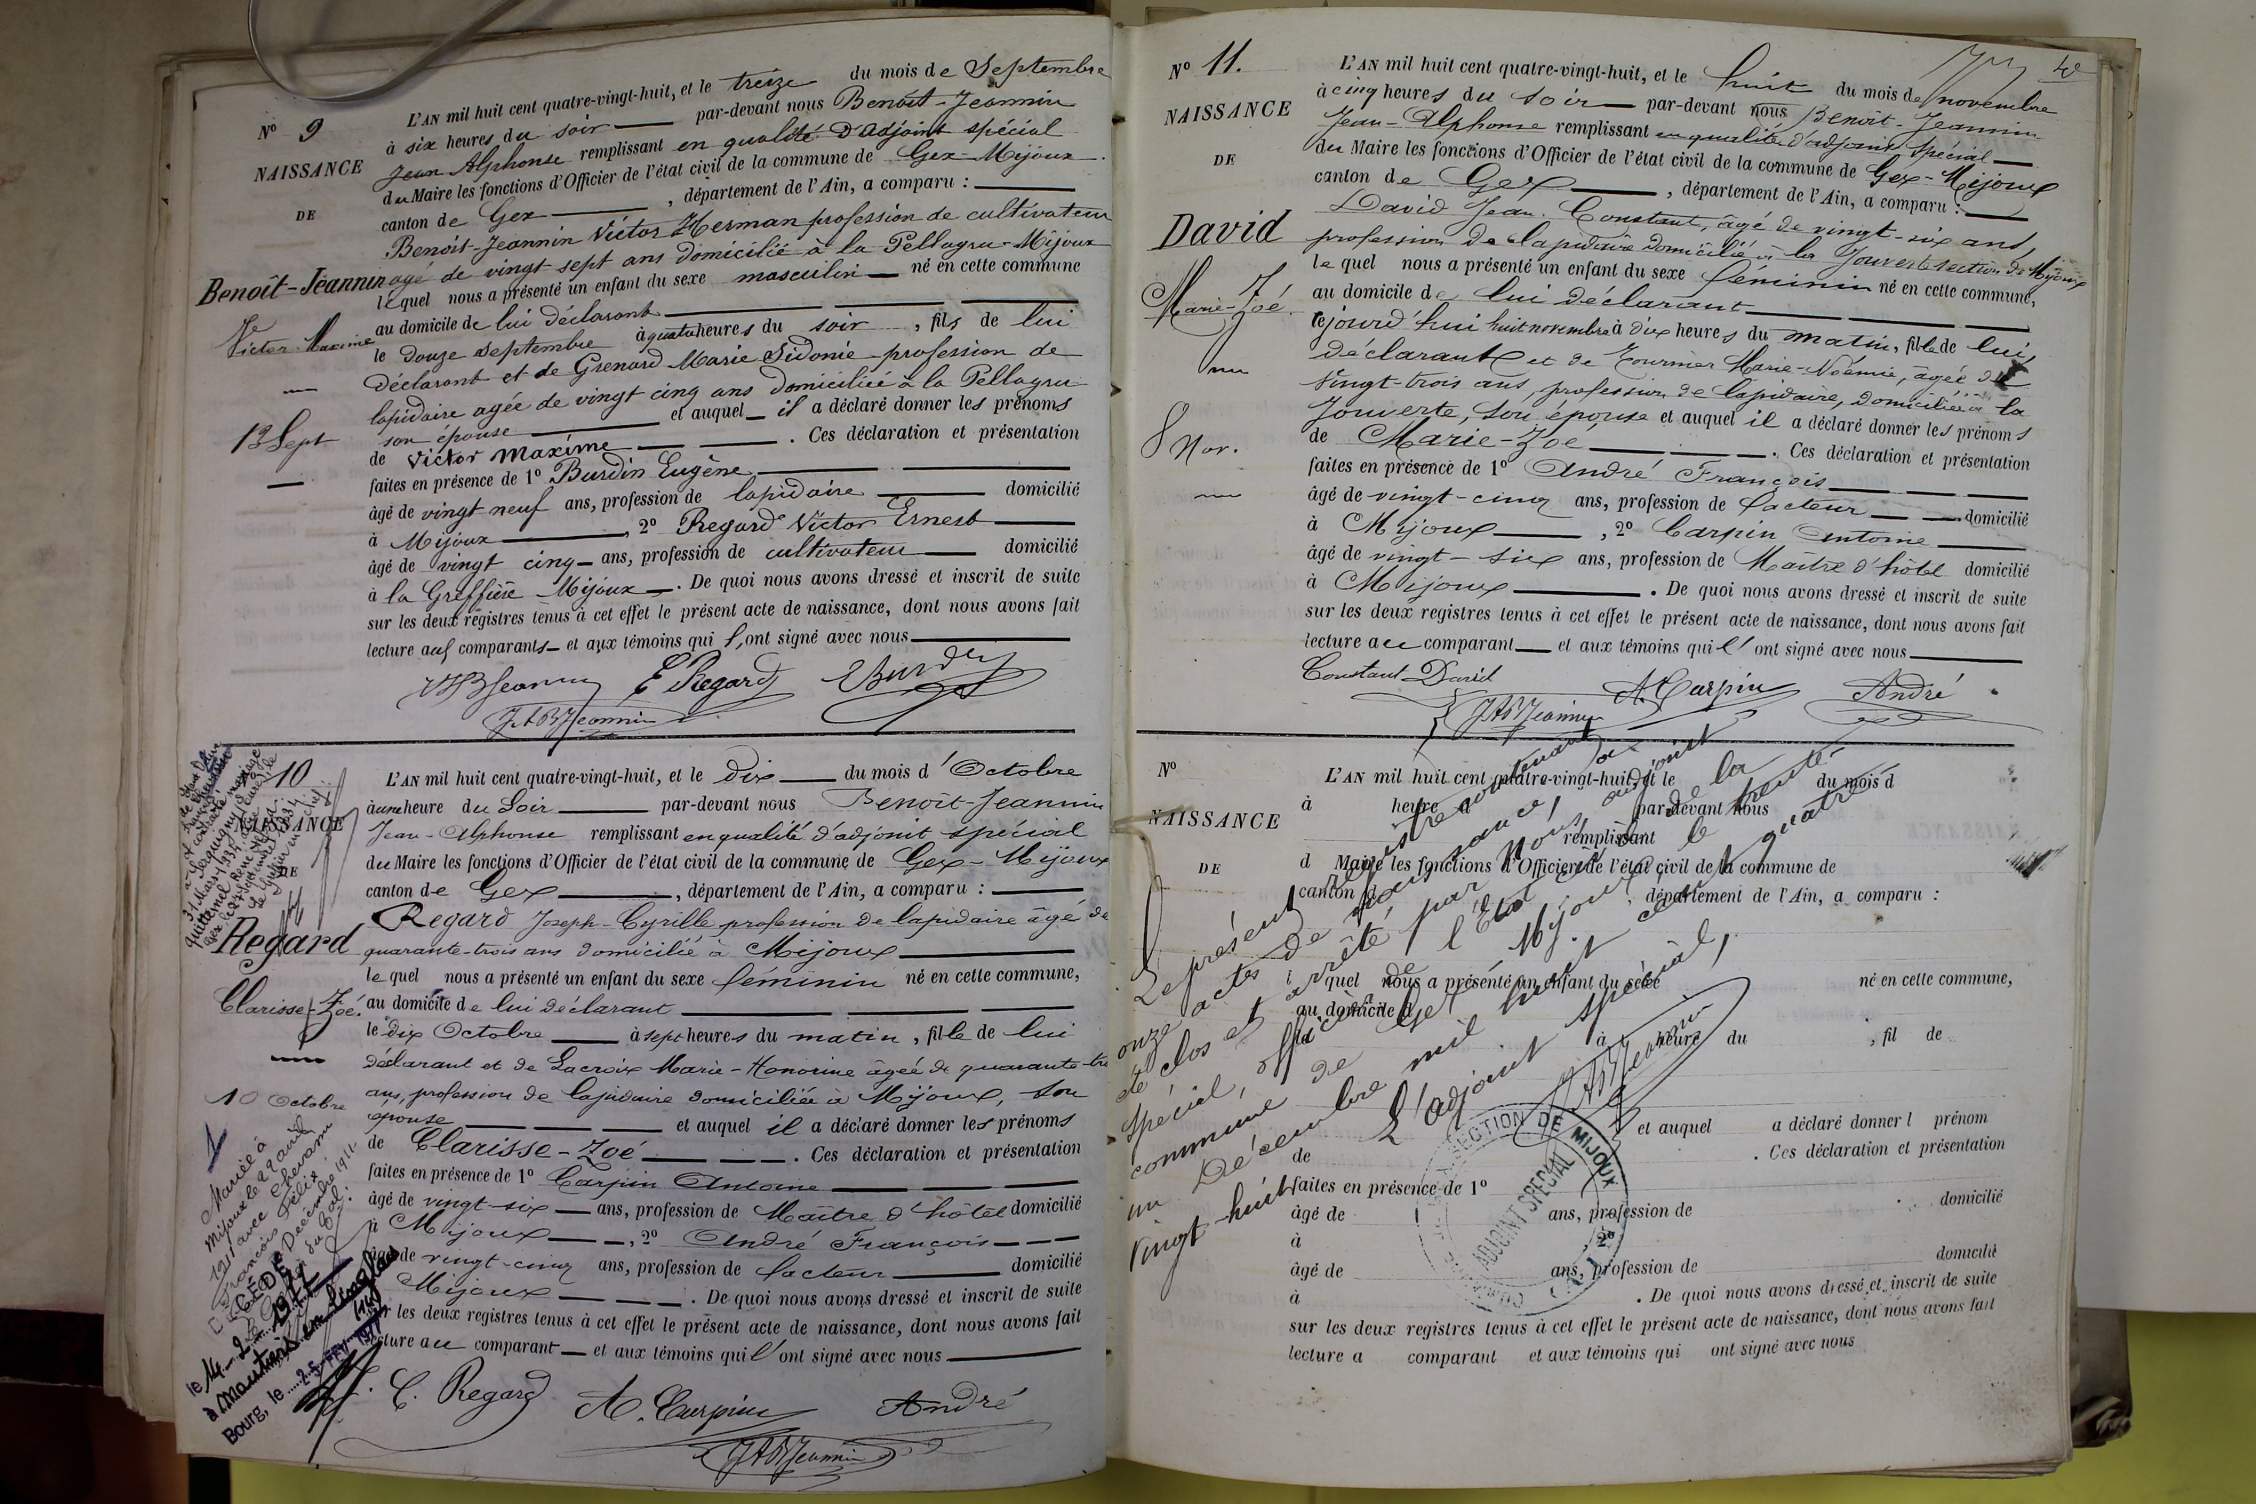 N° 9
NAISSANCE
DE
Benoit-Jeannin
Victor Maxime
12 Sept
L'AN mil huit cent quatre-vingt-huit, et le treize du mois de Septembre
à six heures du soir par-devant nous Benoit-Jeannin
Jean Alphonse remplissant en qualité d'adjoint spécial
du Maire les fonctions d'Officier de l'état civil de la commune de Gex-Mijoux
canton de Gex, département de l'Ain, a comparu :
Benoit-Jeannin Victor Herman profession de cultivateur
agé de vingt sept ans domicilié à la Pellagru-Mijoux
lequel nous a présenté un enfant du sexe masculin né en cette commune
au domicile de lui déclarant
le douze septembre à quatre heures du soir, fils de lui
déclarant et de Grenard Marie Sidonie profession de
lapidaire agée de vingt cinq ans domiciliée à la Pellagru
son épouse et auquel il a déclaré donner les prénoms
de Victor Maxime. Ces déclaration et présentation
faites en présence de 1° Burdin Eugène
âgé de vingt neuf ans, profession de lapidaire domicilié
à Mijoux, 2° Regard Victor Ernest
âgé de vingt cinq ans, profession de cultivateur domicilié
à la Greffière Mijoux. De quoi nous avons dressé et inscrit de suite
sur les deux registres tenus à cet effet le présent acte de naissance, dont nous avons fait
lecture aux comparants et aux témoins qui l'ont signé avec nous
VHBJeannin E Regard EBurdin
JABJeannin
10
NAISSANCE
DE
Regard
Clarisse-Zoé.
10 Octobre
1
Mariée à
Mijoux le 22 avril
1911 avec Chevassu
François Félix
DÉCÉDÉE
le 14-2-1977
à Moutiers
Bourg, le 25 FEV 1977
L'AN mil huit cent quatre-vingt-huit, et le dix du mois d'Octobre
à une heure du Soir par-devant nous Benoît-Jeannin
Jean-Alphonse remplissant en qualité d'adjoint spécial
du Maire les fonctions d'Officier de l'état civil de la commune de Gex-Mijoux
canton de Gex, département de l'Ain, a comparu :
Regard Joseph-Cyrille profession de lapidaire âgé de
quarante-trois ans domicilié à Mijoux
le quel nous a présenté un enfant du sexe féminin né en cette commune,
au domicile de lui déclarant
le dix Octobre à sept heures du matin, fille de lui
déclarant et de Lacroix Marie-Honorine âgée de quarante-tro
ans, profession de lapidaire domiciliée à Mijoux, son
épouse et auquel il a déclaré donner les prénoms
de Clarisse-Zoé. Ces déclaration et présentation
faites en présence de 1° Carpin Antoine
âgé de vingt-six ans, profession de Maître d'hôtel domicilié
à Mijoux, 2° André François
âgé de vingt-cinq ans, profession de facteur domicilié
Mijoux. De quoi nous avons dressé et inscrit de suite
les deux registres tenus à cet effet le présent acte de naissance, dont nous avons fait
lecture au comparant et aux témoins qui l'ont signé avec nous
C. Regard A. Carpin André
JABJeannin
N° 11.
NAISSANCE
DE
David
Marie-Zoé.
8 Nov.
L'AN mil huit cent quatre-vingt-huit, et le huit du mois de novembre
à cinq heures du soir par-devant nous Benoit-Jeannin
Jean-Alphonse remplissant en qualité d'adjoint spécial
du Maire les fonctions d'Officier de l'état civil de la commune de Gex-Mijoux
canton de Gex, département de l'Ain, a comparu :
David Jean-Constant, âgé de vingt-six ans,
profession de lapidaire domicilié à la Jouverte section de Mijoux
le quel nous a présenté un enfant du sexe féminin né en cette commune,
au domicile de lui déclarant
cejourd'hui huit novembre à dix heures du matin, fille de lui,
déclarant et de Tournier Marie-Noémie, âgée de
vingt-trois ans, profession de lapidaire, domiciliée à la
Jouverte, son épouse et auquel il a déclaré donner les prénoms
de Marie-Zoé. Ces déclaration et présentation
faites en présence de 1° André François
âgé de vingt-cinq ans, profession de facteur domicilié
à Mijoux, 2° Carpin Antoine
âgé de vingt-six ans, profession de Maître d'hôtel domicilié
à Mijoux. De quoi nous avons dressé et inscrit de suite
sur les deux registres tenus à cet effet le présent acte de naissance, dont nous avons fait
lecture au comparant et aux témoins qui l'ont signé avec nous
Constant David A. Carpin André
JABJeannin
N°
NAISSANCE
DE
L'AN mil huit cent quatre-vingt-huit, et le du mois d
à heure d par-devant nous
remplissant
d Maire les fonctions d'Officier de l'état civil de la commune de
canton d, département de l'Ain, a comparu :
quel nous a présenté un enfant du sexe né en cette commune,
au domicile d
à heure du, fil de
et auquel a déclaré donner l prénom
de. Ces déclaration et présentation
faites en présence de 1°
âgé de ans, profession de domicilié
à 2°
âgé de ans, profession de domicilié
à. De quoi nous avons dressé et inscrit de suite
sur les deux registres tenus à cet effet le présent acte de naissance, dont nous avons fait
lecture a comparant et aux témoins qui ont signé avec nous
Le présent registre contenant
onze actes de naissance, a
été clos et arrêté par nous adjoint
spécial, officier de l'Etat civil de la
commune de Gex Mijoux le trente
un Décembre mil huit cent quatre
vingt-huit
L'adjoint spécial,
JABJeannin
SECTION DE MIJOUX
ADJOINT SPECIAL